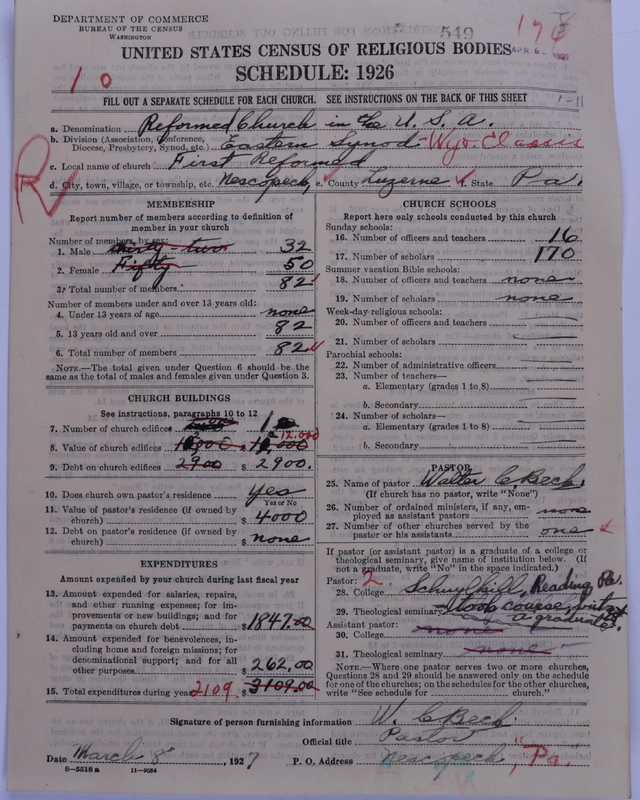 DEPARTMENT OF COMMERCE
BUREAU OF THE CENSUS
WASHINGTON
549
APR 6 1927
UNITED STATES CENSUS OF RELIGIOUS BODIES
SCHEDULE: 1926
10
FILL OUT A SEPARATE SCHEDULE FOR EACH CHURCH. SEE INSTRUCTIONS ON THE BACK OF THIS SHEET
1-11
a. Denomination Reformed Church in the U. S. A.
b. Division (Association, Conference, Diocese, Presbytery, Synod, etc.) Eastern Synod - Wyo. Classis
c. Local name of church First Reformed
R
d. City, town, village, or township, etc. Nescopeck e. County Luzerne f. State Pa.
MEMBERSHIP
Report number of members according to definition of
member in your church
Number of members, by sex:
1. Male thirty-two 32
2. Female Fifty 50
3. Total number of members 82
Number of members under and over 13 years old:
4. Under 13 years of age none
5. 13 years old and over 82
6. Total number of members 82
NOTE.—The total given under Question 6 should be
same as the total of males and females given under Question 3.
CHURCH BUILDINGS
See instructions, paragraphs 10 to 12
7. Number of church edifices 1
8. Value of church edifices $ 12,000
9. Debt on church edifices 2900 $ 2900.
10. Does church own pastor's residence yes
Yes or No
11. Value of pastor's residence (if owned by
church) $ 4000
12. Debt on pastor's residence (if owned by
church) $ none
EXPENDITURES
Amount expended by your church during last fiscal year
13. Amount expended for salaries, repairs,
and other running expenses; for im-
provements or new buildings; and for
payments on church debt $ 1847.00
14. Amount expended for benevolences, in-
cluding home and foreign missions; for
denominational support; and for all
other purposes $ 262.00
15. Total expenditures during year 2109. $ 2109.00
CHURCH SCHOOLS
Report here only schools conducted by this church
Sunday schools:
16. Number of officers and teachers 16
17. Number of scholars 170
Summer vacation Bible schools:
18. Number of officers and teachers none
19. Number of scholars none
Week-day-religious schools:
20. Number of officers and teachers
21. Number of scholars
Parochial schools:
22. Number of administrative officers
23. Number of teachers—
a. Elementary (grades 1 to 8)
b. Secondary
24. Number of scholars—
a. Elementary (grades 1 to 8)
b. Secondary
PASTOR
25. Name of pastor Walter C Beck
(If church has no pastor, write "None")
26. Number of ordained ministers, if any, em-
ployed as assistant pastors none
27. Number of other churches served by the
pastor or his assistants one
If pastor (or assistant pastor) is a graduate of a college or
theological seminary, give name of institution below. (If
not a graduate, write "No" in the space indicated.)
Pastor: 2.
28. College Schuylkill, Reading, Pa.
29. Theological seminary Took course, but not
a graduate
Assistant pastor:
30. College none
31. Theological seminary none
NOTE.—Where one pastor serves two or more churches,
Questions 28 and 29 should be answered only on the schedule
for one of the churches; on the schedules for the other churches,
write "See schedule for church."
Signature of person furnishing information W. C Beck
Official title Pastor
Date March 8 1927 P. O. Address Nescopeck, "Pa."
8—5518a 11—9054